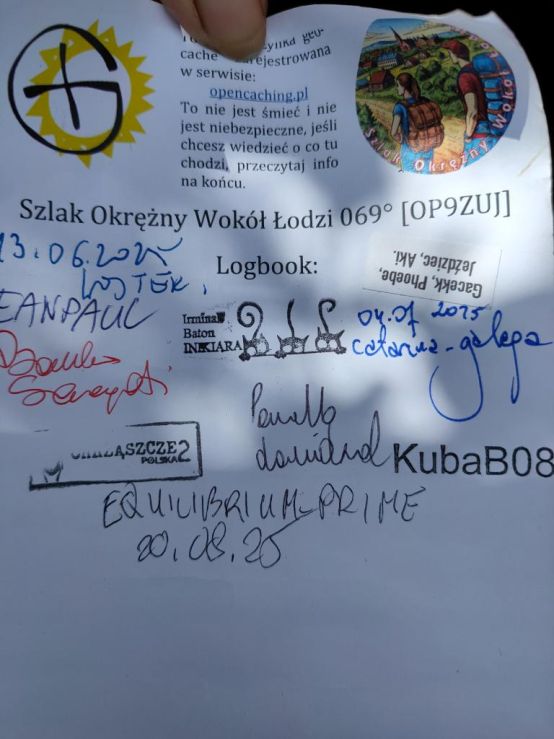 cache zarejestrowana
w serwisie:
opencaching.pl
To nie jest śmieć i nie
jest niebezpieczne, jeśli
chcesz wiedzieć o co tu
chodzi, przeczytaj info
na końcu.
Szlak Okrężny Wokół
Szlak Okrężny Wokół Łodzi 069° [OP9ZUJ]
Logbook:
13.06.2025
WOJTEK,
Gacekk, Phoebe,
Jeździec, Aki.
EANPAUL
Irmina
Baton
INKIARA
04.07 2025
catarina-galega
POLSKA 2
KubaB08
EQUILIBRIUM-PRIME
20.08.25